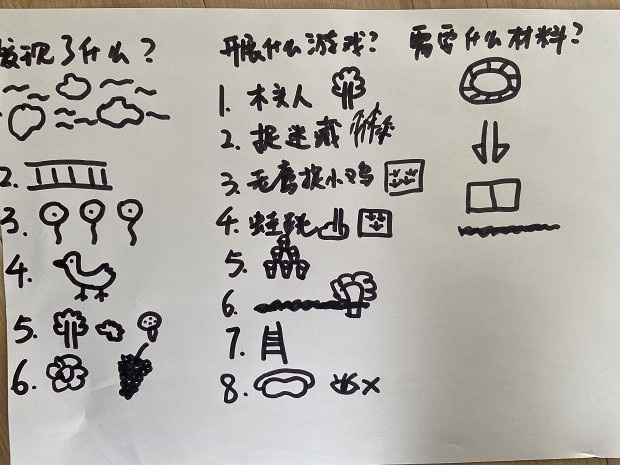 发现了什么？
2.
3.
4.
5.
6.
开展什么游戏？
1. 木头人
2. 捉迷藏
3. 老鹰捉小鸡
4.
5.
6.
7.
8.
需要什么材料？